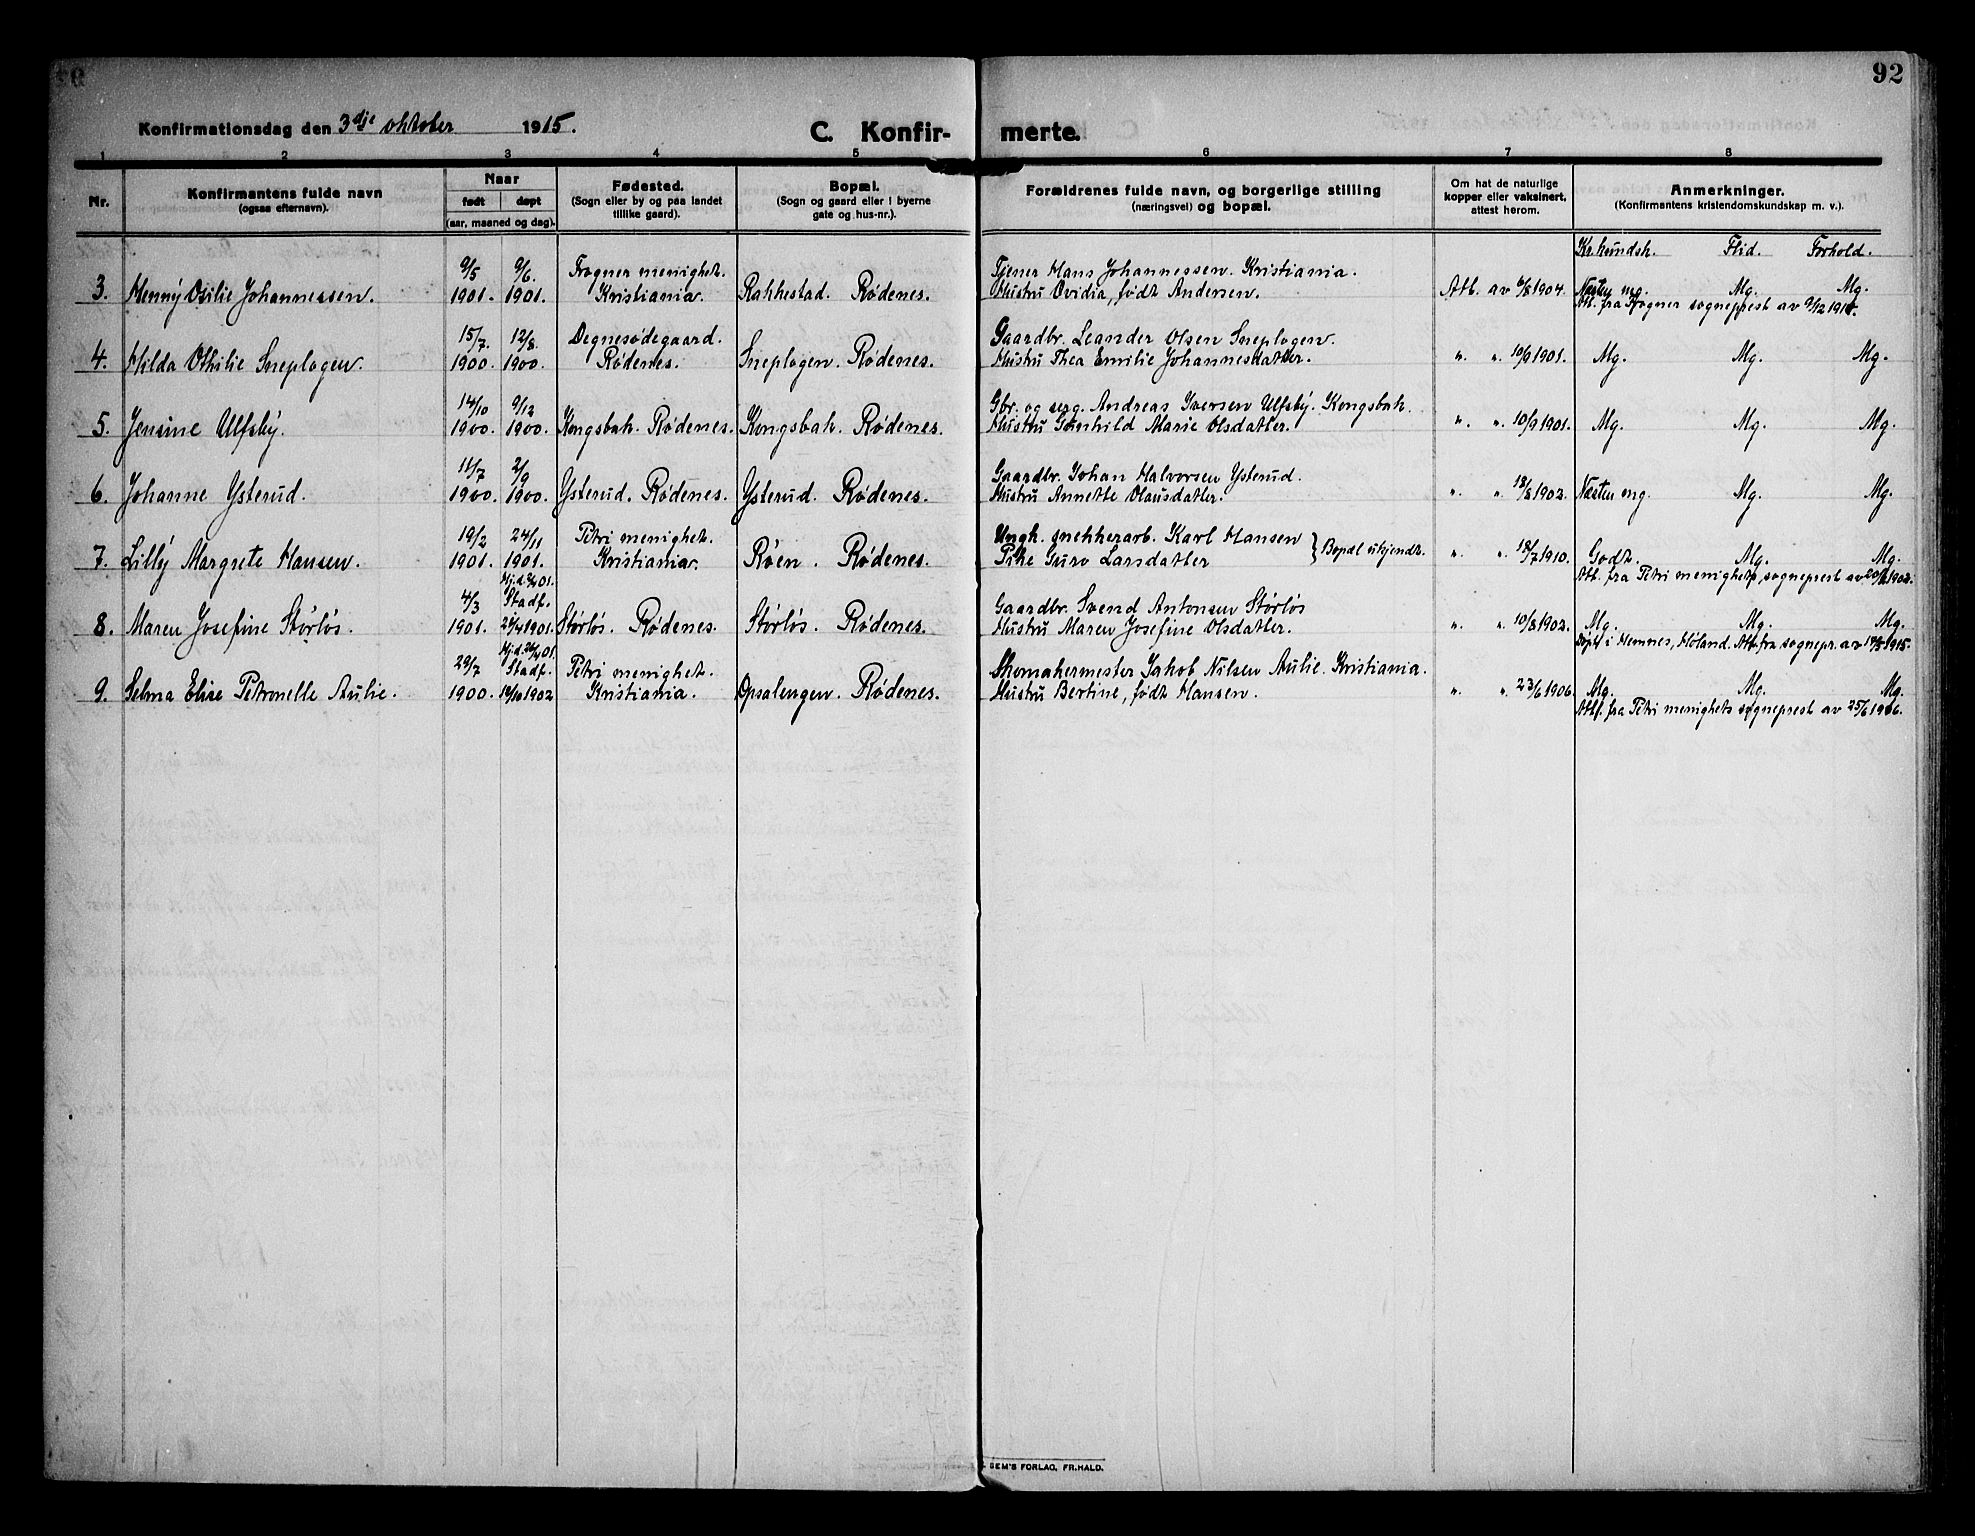 92
Konfirmationsdag den 3dje oktober 1915. C. Konfir- merte.
1 2 3 4 5 6 7 8
Nr. Konfirmantens fulde navn (ogsaa efternavn). Naar født døpt (aar, maaned og dag). Fødested. (Sogn eller by og paa landet tillike gaard). Bopæl. (Sogn og gaard eller i byerne gate og hus-nr.). Forældrenes fulde navn, og borgerlige stilling (næringsvei) og bopæl. Om hat de naturlige kopper eller vaksinert, attest herom. Anmerkninger. (Konfirmantens kristendomskundskap m. v.).
Kr.kundsk. Flid. Forhold.
9/5 9/6. Frogner menighet. Tjener Hans Johannessen. Kristiania.
3. Henny Osilie Johannessen. 1901. 1901. Kristiania. Rakkestad. Rødenes. Hustru Ovidia, født Andersen. Att. av 6/8 1904. Næsten mg. Mg. Mg.
Att. fra Frogner sogneprest av
15/7 12/8 Degnesødegaard. Gaardbr. Leander Olsen Sneplogen.
4. Hilda Othilie Sneplogen. 1900. 1900. Rødenes. Sneplogen. Rødenes. Hustru Thea Emilie Johannesdatter. " " 10/9 1901. Mg. Mg. Mg.
14/10 9/12 Gbr. og serg. Andreas Iversen Ulfsby. Kongsbak.
5. Jensine Ulfsby. 1900. 1900. Kongsbak. Rødenes. Kongsbak. Rødenes. Hustru Gunhild Marie Olsdatter. " " 10/9 1901. Mg. Mg. Mg.
11/7 2/9 Gaardbr. Johan Halvorsen Ysterud.
6. Johanne Ysterud. 1900. 1900. Ysterud. Rødenes. Ysterud. Rødenes. Hustru Annette Olausdatter. " " 18/8 1902. Næsten mg. Mg. Mg.
19/2 24/11 Petri menighet. Ungk. snekkerarb. Karl Hansen
7. Lilly Margrete Hansen. 1901. 1901. Kristiania. Røen. Rødenes. Pike Guro Larsdatter } Bopæl ukjendt. " " 18/7 1910. Godt. Mg. Mg.
Att. fra Petri menighets sogneprest av
4/3 Stadf. Gaardbr. Svend Antonsen Størløs
8. Maren Josefine Størløs. 1901. Størløs. Rødenes. Størløs. Rødenes. Hustru Maren Josefine Olsdatter. " " 10/8 1902. Mg. Mg. Mg.
Døpt i Hemnes, Høland. Att. fra sognepr. av
29/7 Stadf. Petri menighet. Skomakermester Jakob Nilsen Aulie. Kristiania.
9. Selma Elise Petronelle Aulie. 1900. Kristiania. Opsalengen. Rødenes. Hustru Bertine, født Hansen. " " 23/6 1906. Mg. Mg. Mg.
Att. fra Petri menighets sogneprest av 25/6 1906.
SEM'S FORLAG, FR.HALD.